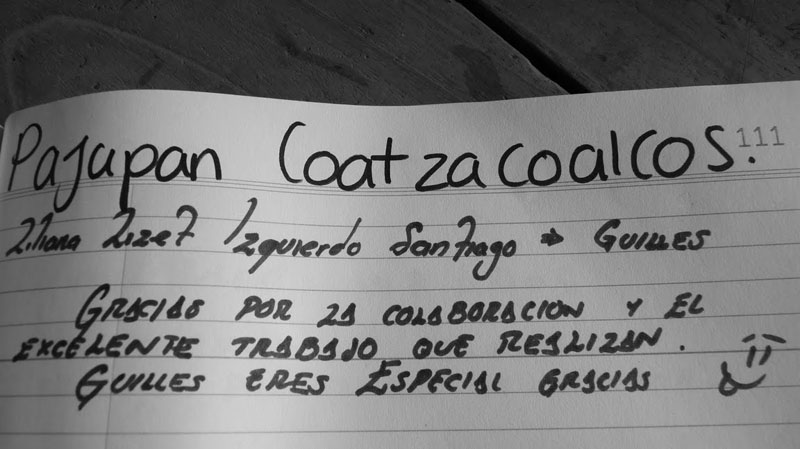 Pajapan Coatzacoalcos.
111
Liliana Lizet Izquierdo Santiago → GUILLES
GRACIAS POR LA COLABORACION Y EL
EXCELENTE TRABAJO QUE REALIZAN.
GUILLES ERES ESPECIAL GRACIAS